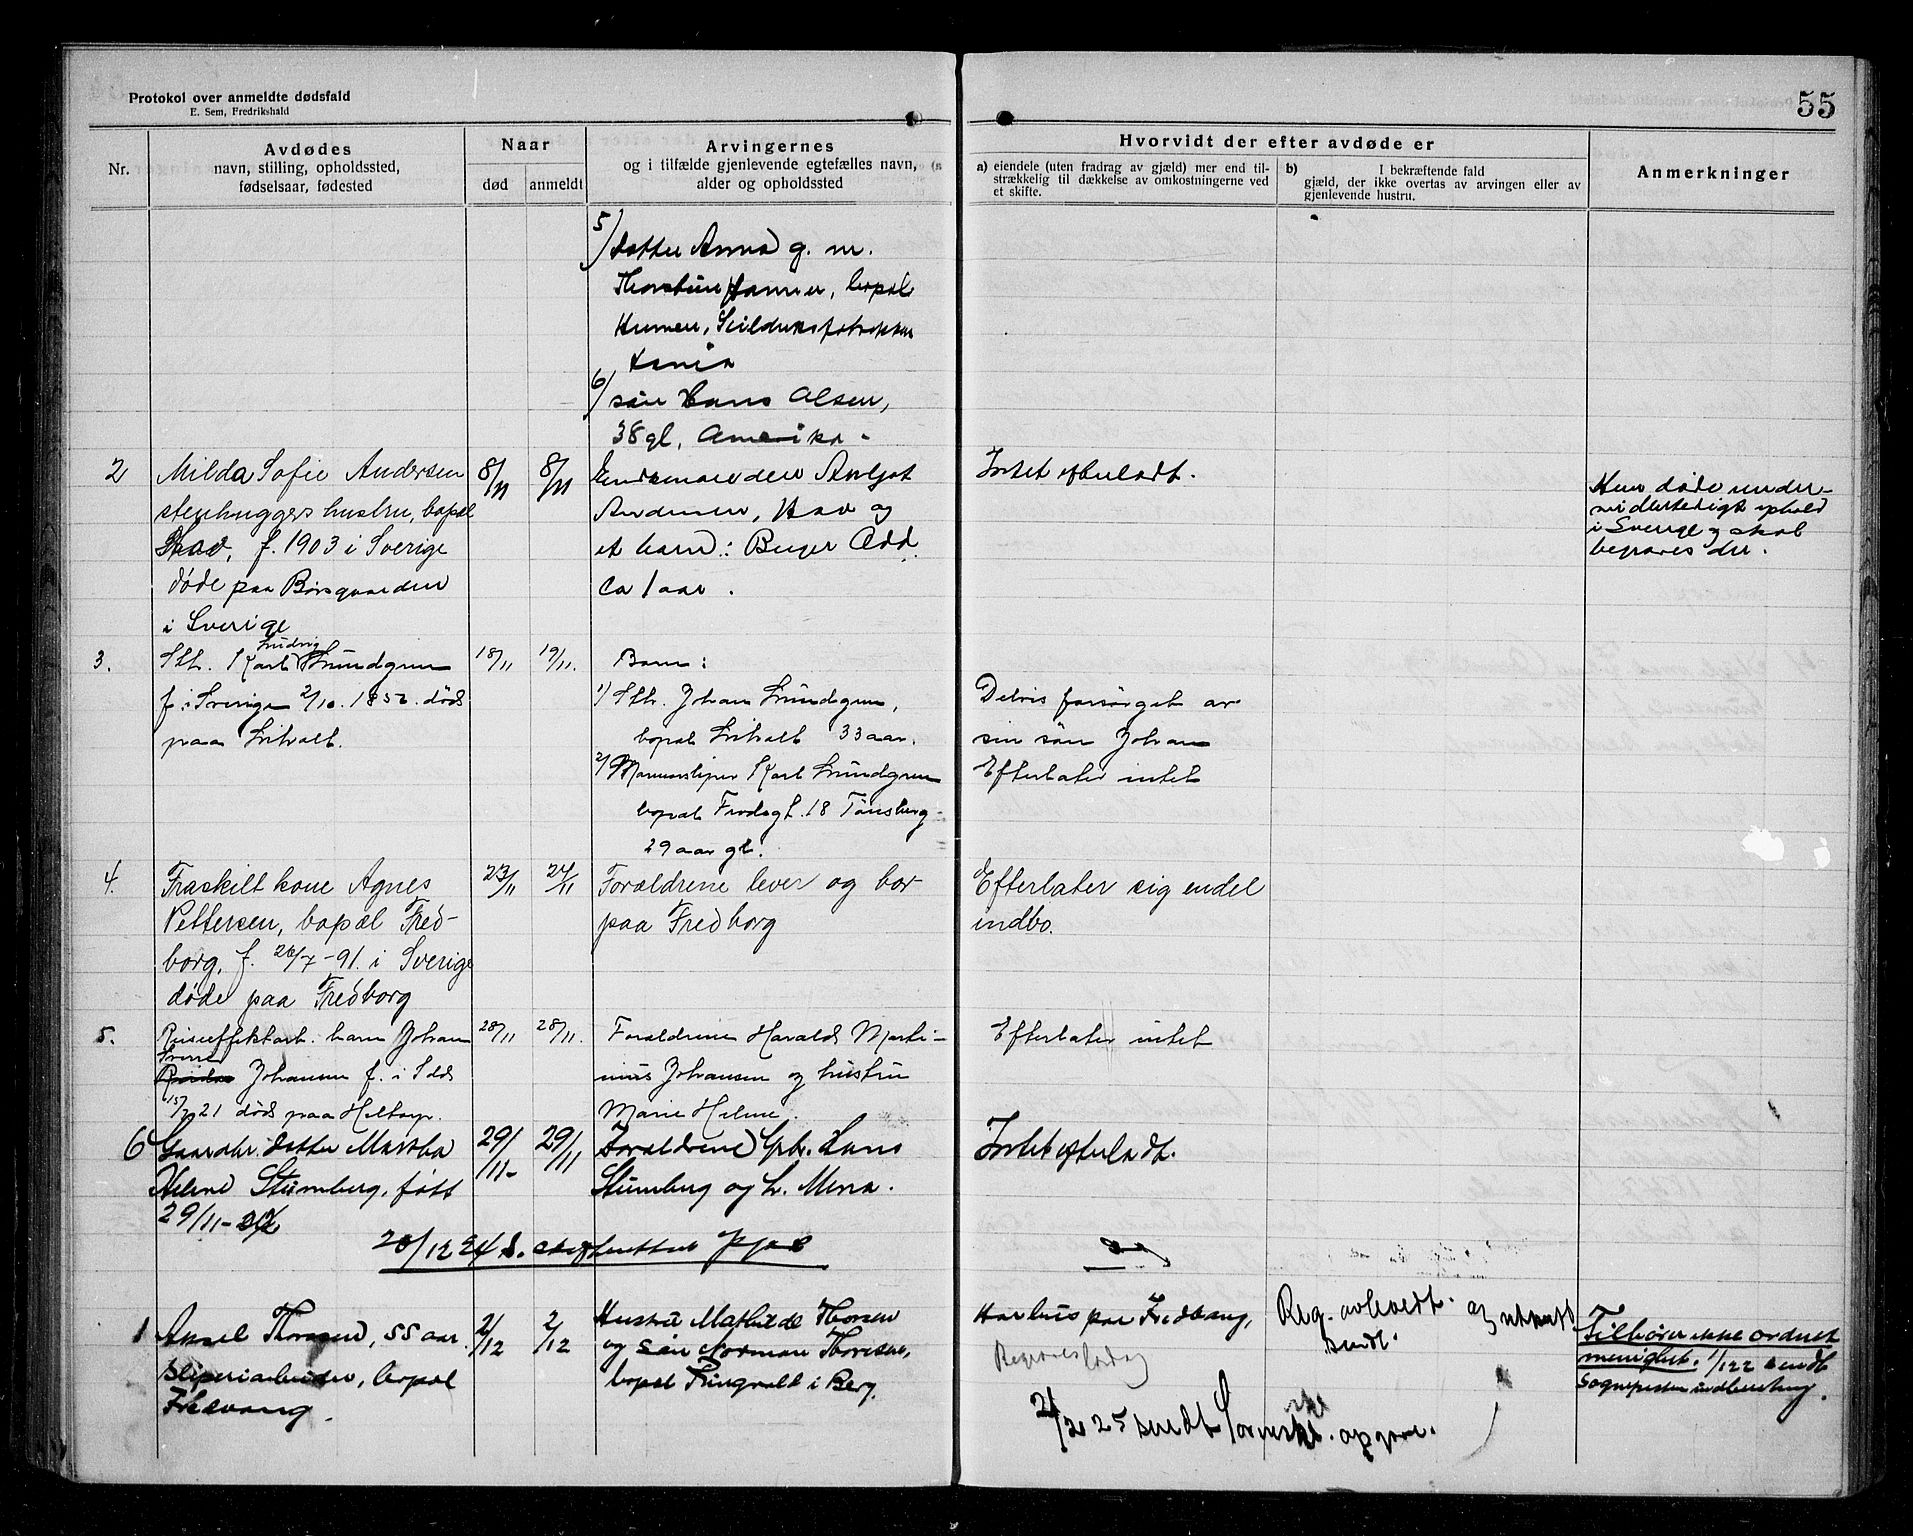 Protokol over anmeldte dødsfald
E. Sem, Fredrikshald
55
Nr.
Avdødes
navn, stilling, opholdssted,
fødselsaar, fødested
Naar
død
anmeldt
Arvingernes
og i tilfælde gjenlevende egtefælles navn,
alder og opholdssted
Hvorvidt der efter avdøde er
a) eiendele (uten fradrag av gjæld) mer end til-
strækkelig til dækkelse av omkostningerne ved
et skifte.
b) I bekræftende fald
gjæld, der ikke overtas av arvingen eller av
gjenlevende hustru.
Anmerkninger
5/ datter Anna g. m.
bopæl
6/ søn Hans Olsen,
38 gl, Amerika.
2 Milda Sofie Andersen
stenhuggers hustru, bopæl
f. 1903 i Sverige
døde paa
i Sverige
8/11
8/11
Enkemanden
Andersen, og
et barn: Birger Odd
ca 1 aar.
Intet efterladt.
Hun døde under
midlertidigt ophold
i Sverige og skal
begraves der.
3. Sth. Karl Ludvig Lundgren
f. i Sverige 2/10. 1852. død
paa
18/11
19/11.
Barn:
1) Sth. Johan Lundgren,
bopæl 33 aar.
2) Karl Lundgren
bopæl Frodegt. 18 Tønsberg
29 aar gl.
Delvis forsørget av
sin søn Johan
Efterlater intet
4. Fraskilt kone Agnes
Pettersen, bopæl Fred-
borg, f. 26/7-91. i Sverige
døde paa Fredborg
23/11
24/11
Forældrene lever og bor
paa Fredborg
Efterlater sig endel
indbo.
5. barn Johan
Johansen f. i Idd
15/7 21 død paa
28/11
28/11.
Forældrene Harald Marti-
nius Johansen og hustru
Marie Helene.
Efterlater intet
6 Gaardbr. datter Martha
Helene Stumberg, født
29/11-
29/11-
29/11
Forældrene Gbr. Hans
Stumberg og h. Mina.
Intet efterladt.
20/12 24
1 Aksel Thoresen, 55 aar
sliperiarbeider, bopæl
Fredvang.
2/12
2/12
Hustru Mathilde Thoresen
og søn Norman Thoresen,
bopæl i Berg.
Har hus paa Fredvang,
Reg. avholdt. og
sendt.
Tilhører ikke ordnet
menighet. 1/1 22 sendt
Sognepresten indberetning.
25 sendt opgave.